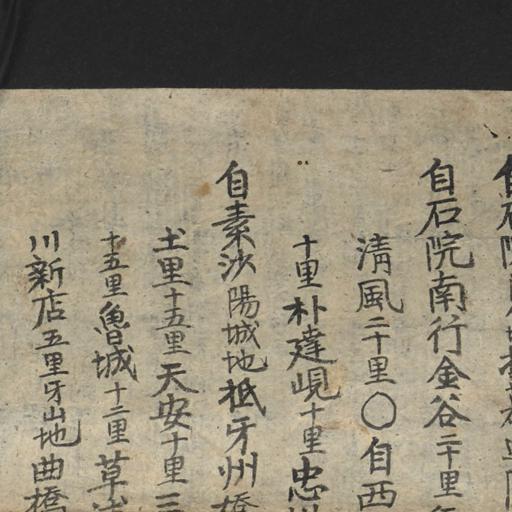 自石院
自石院南行金谷二十里
清風二十里〇自西
十里朴達峴十里忠州
自素沙陽城地抵牙州橋
土里十五里天安十里三
十五里魯城十二里草
川新店五里牙山地曲橋